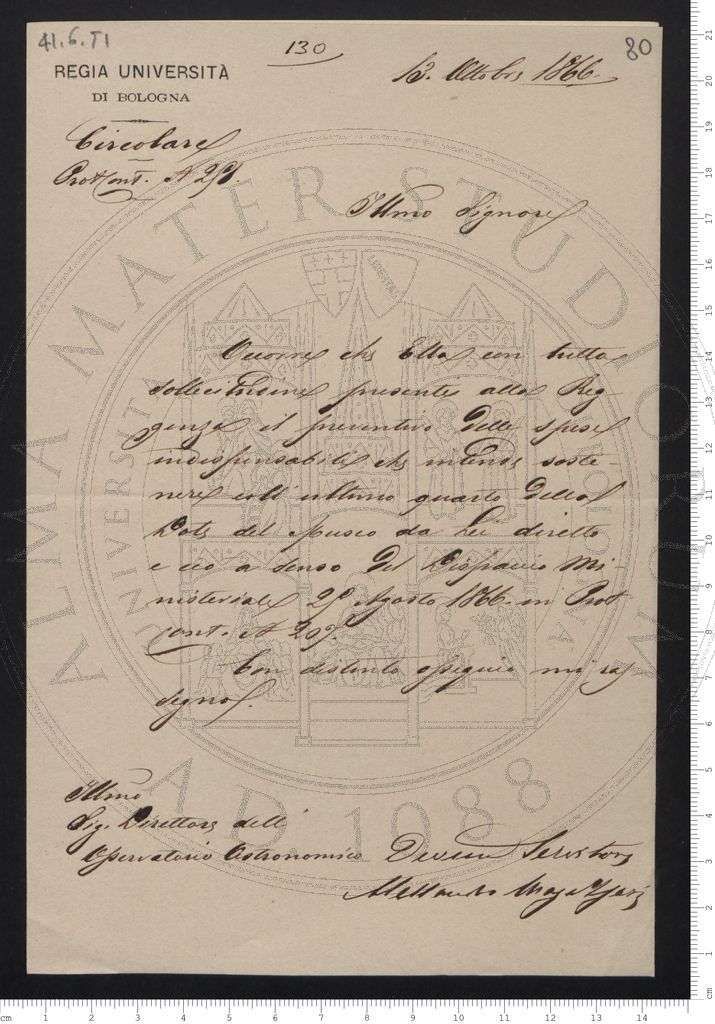 41.6.T1
130
80
REGIA UNIVERSITÀ
DI BOLOGNA
13. Ottobre 1866.
Circolare
Prot Cont. N
Illmo Signore
Occorre che Ella con tutta
sollecitudine presente alla Reg
genza il preventivo delle spese
indispensabili che intende soste-
nere coll'ultimo quarto della
Dote del Museo da Lei diretto
e ciò a senso del Dispaccio Mi-
nisteriale Agosto 1866. in Prot
cont. N
Con distinto ossequio mi ras
segno.
Illmo
Sig. Direttore dell'
Osservatorio Astronomico
Servitore
Alessandro
ALMA MATER STUDIORUM
A.D. 1088
LIBERTAS